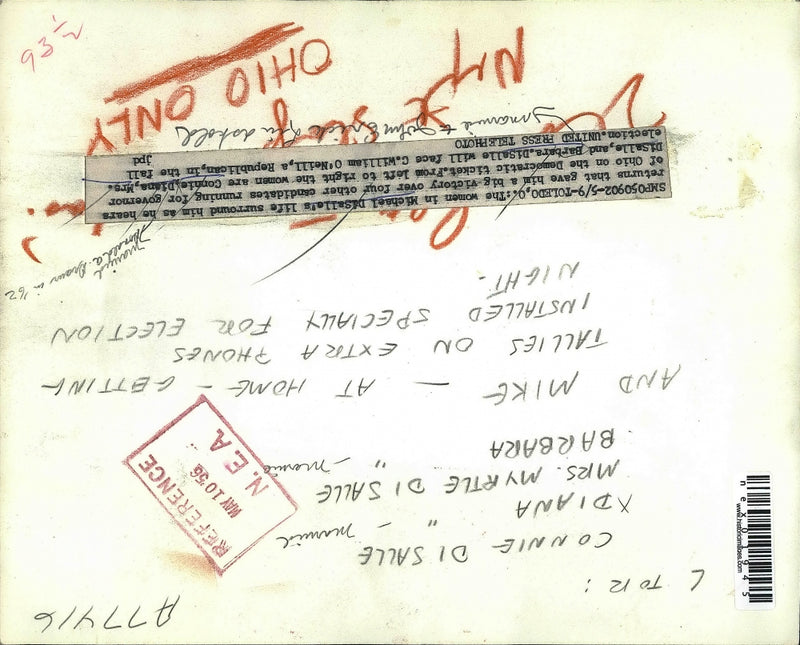 A77416
L TO R:
CONNIE DI SALLE - married
X DIANA "
MRS. MYRTLE DI SALLE
BARBARA " - married
REFERENCE
MAY 10 56
N.E.A.
AND MIKE — AT HOME — GETTING
TALLIES ON EXTRA PHONES
INSTALLED SPECIALLY FOR ELECTION
NIGHT.
married
Donald A. Brown in '62
SMP050902-5/9-TOLEDO,O.:The women in Michael DiSalle's life surround him as he hears
returns that gave him a big victory over four other candidates running for governor
of Ohio on the Democratic ticket.From left to right the women are Connie,Diana,Mrs.
DiSalle,and Barbara.DiSalle will face C.Willian O'Neill, Republican,in the fall
election.UNITED PRESS TELEPHOTO jpd
married to John Erick
OHIO ONLY
93 1/2
nex01945
www.historicimages.com